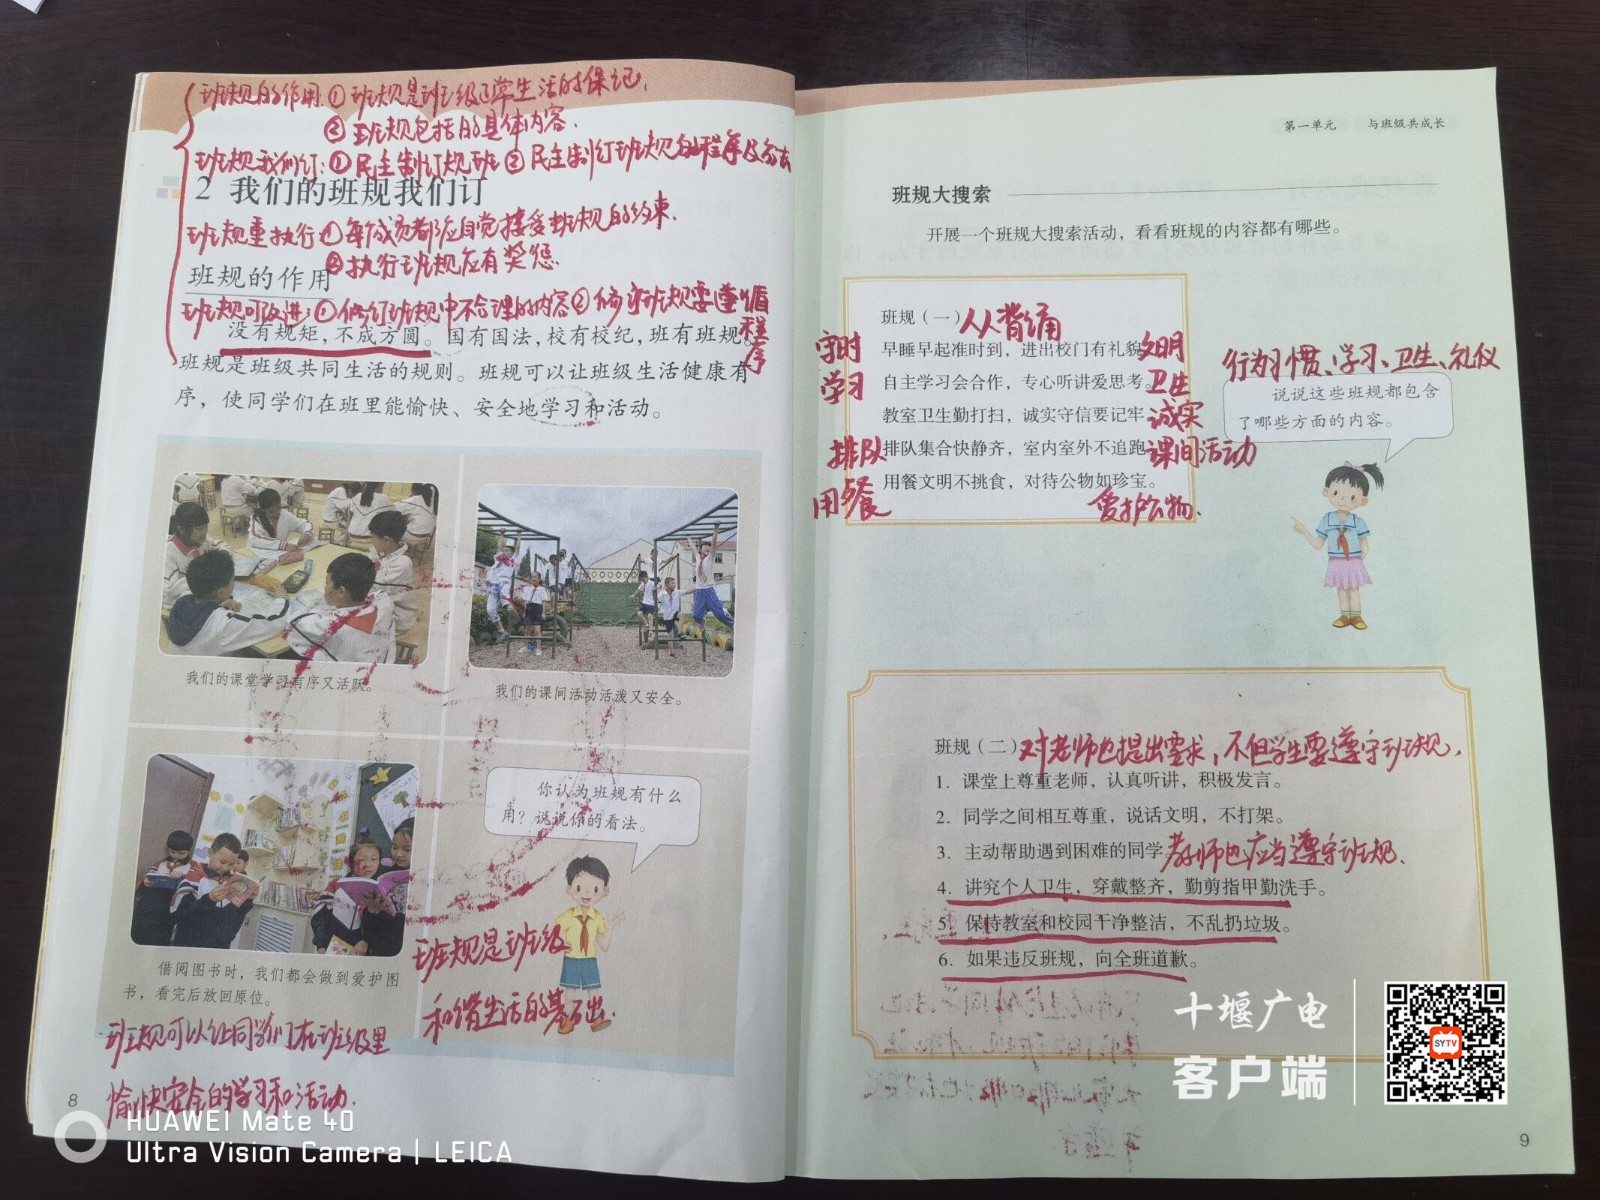 班规的作用:①班规是班级正常生活的保证.
②班规包括的具体内容.
班规我们订:①民主制订规班②民主制订班规的程序及方法
2 我们的班规我们订
班规重执行①每个成员都应自觉接受班规的约束.
②执行班规应有奖惩
班规的作用
班规可改进:①修订班规中不合理的内容②修订班规要遵循
程序
没有规矩,不成方圆。国有国法,校有校纪,班有班规。
班规是班级共同生活的规则。班规可以让班级生活健康有
序,使同学们在班里能愉快、安全地学习和活动。
我们的课堂学习有序又活跃。
我们的课间活动活泼又安全。
你认为班规有什么
用?说说你的看法。
借阅图书时,我们都会做到爱护图
书,看完后放回原位。
班规是班级
和谐生活的基础.
班规可以让同学们在班级里
愉快安全的学习和活动.
8
HUAWEI Mate 40
Ultra Vision Camera | LEICA
第一单元 与班级共成长
班规大搜索
开展一个班规大搜索活动,看看班规的内容都有哪些。
班规(一)人人背诵
守时 早睡早起准时到,进出校门有礼貌 文明
学习 自主学习会合作,专心听讲爱思考。卫生
教室卫生勤打扫,诚实守信要记牢 诚实
排队 排队集合快静齐,室内室外不追跑 课间活动
用餐 用餐文明不挑食,对待公物如珍宝。
爱护公物.
行为习惯、学习、卫生、礼仪
说说这些班规都包含
了哪些方面的内容。
班规(二)对老师也提出需求,不但学生要遵守班规,
1. 课堂上尊重老师,认真听讲,积极发言。
2. 同学之间相互尊重,说话文明,不打架。
3. 主动帮助遇到困难的同学 教师也应当遵守班规.
4. 讲究个人卫生,穿戴整齐,勤剪指甲勤洗手。
5. 保持教室和校园干净整洁,不乱扔垃圾。
6. 如果违反班规,向全班道歉。
十堰广电
客户端
SYTV
9